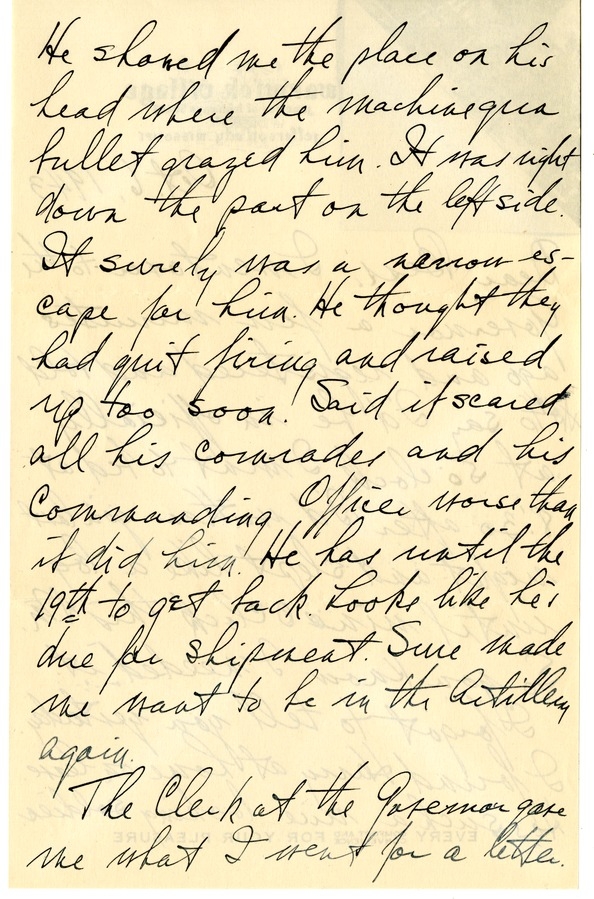 He showed me the place on his
head where the machinegun
bullet grazed him. It was right
down the part on the left side.
It surely was a narrow es-
cape for him. He thought they
had quit firing and raised
up too soon. Said it scared
all his comrades and his
Commanding Officer worse than
it did him. He has until the
19th to get back. Looks like he's
due for shipment. Sure made
me want to be in the Artillery
again.
The Clerk at the Governor gave
me what I went for a letter.